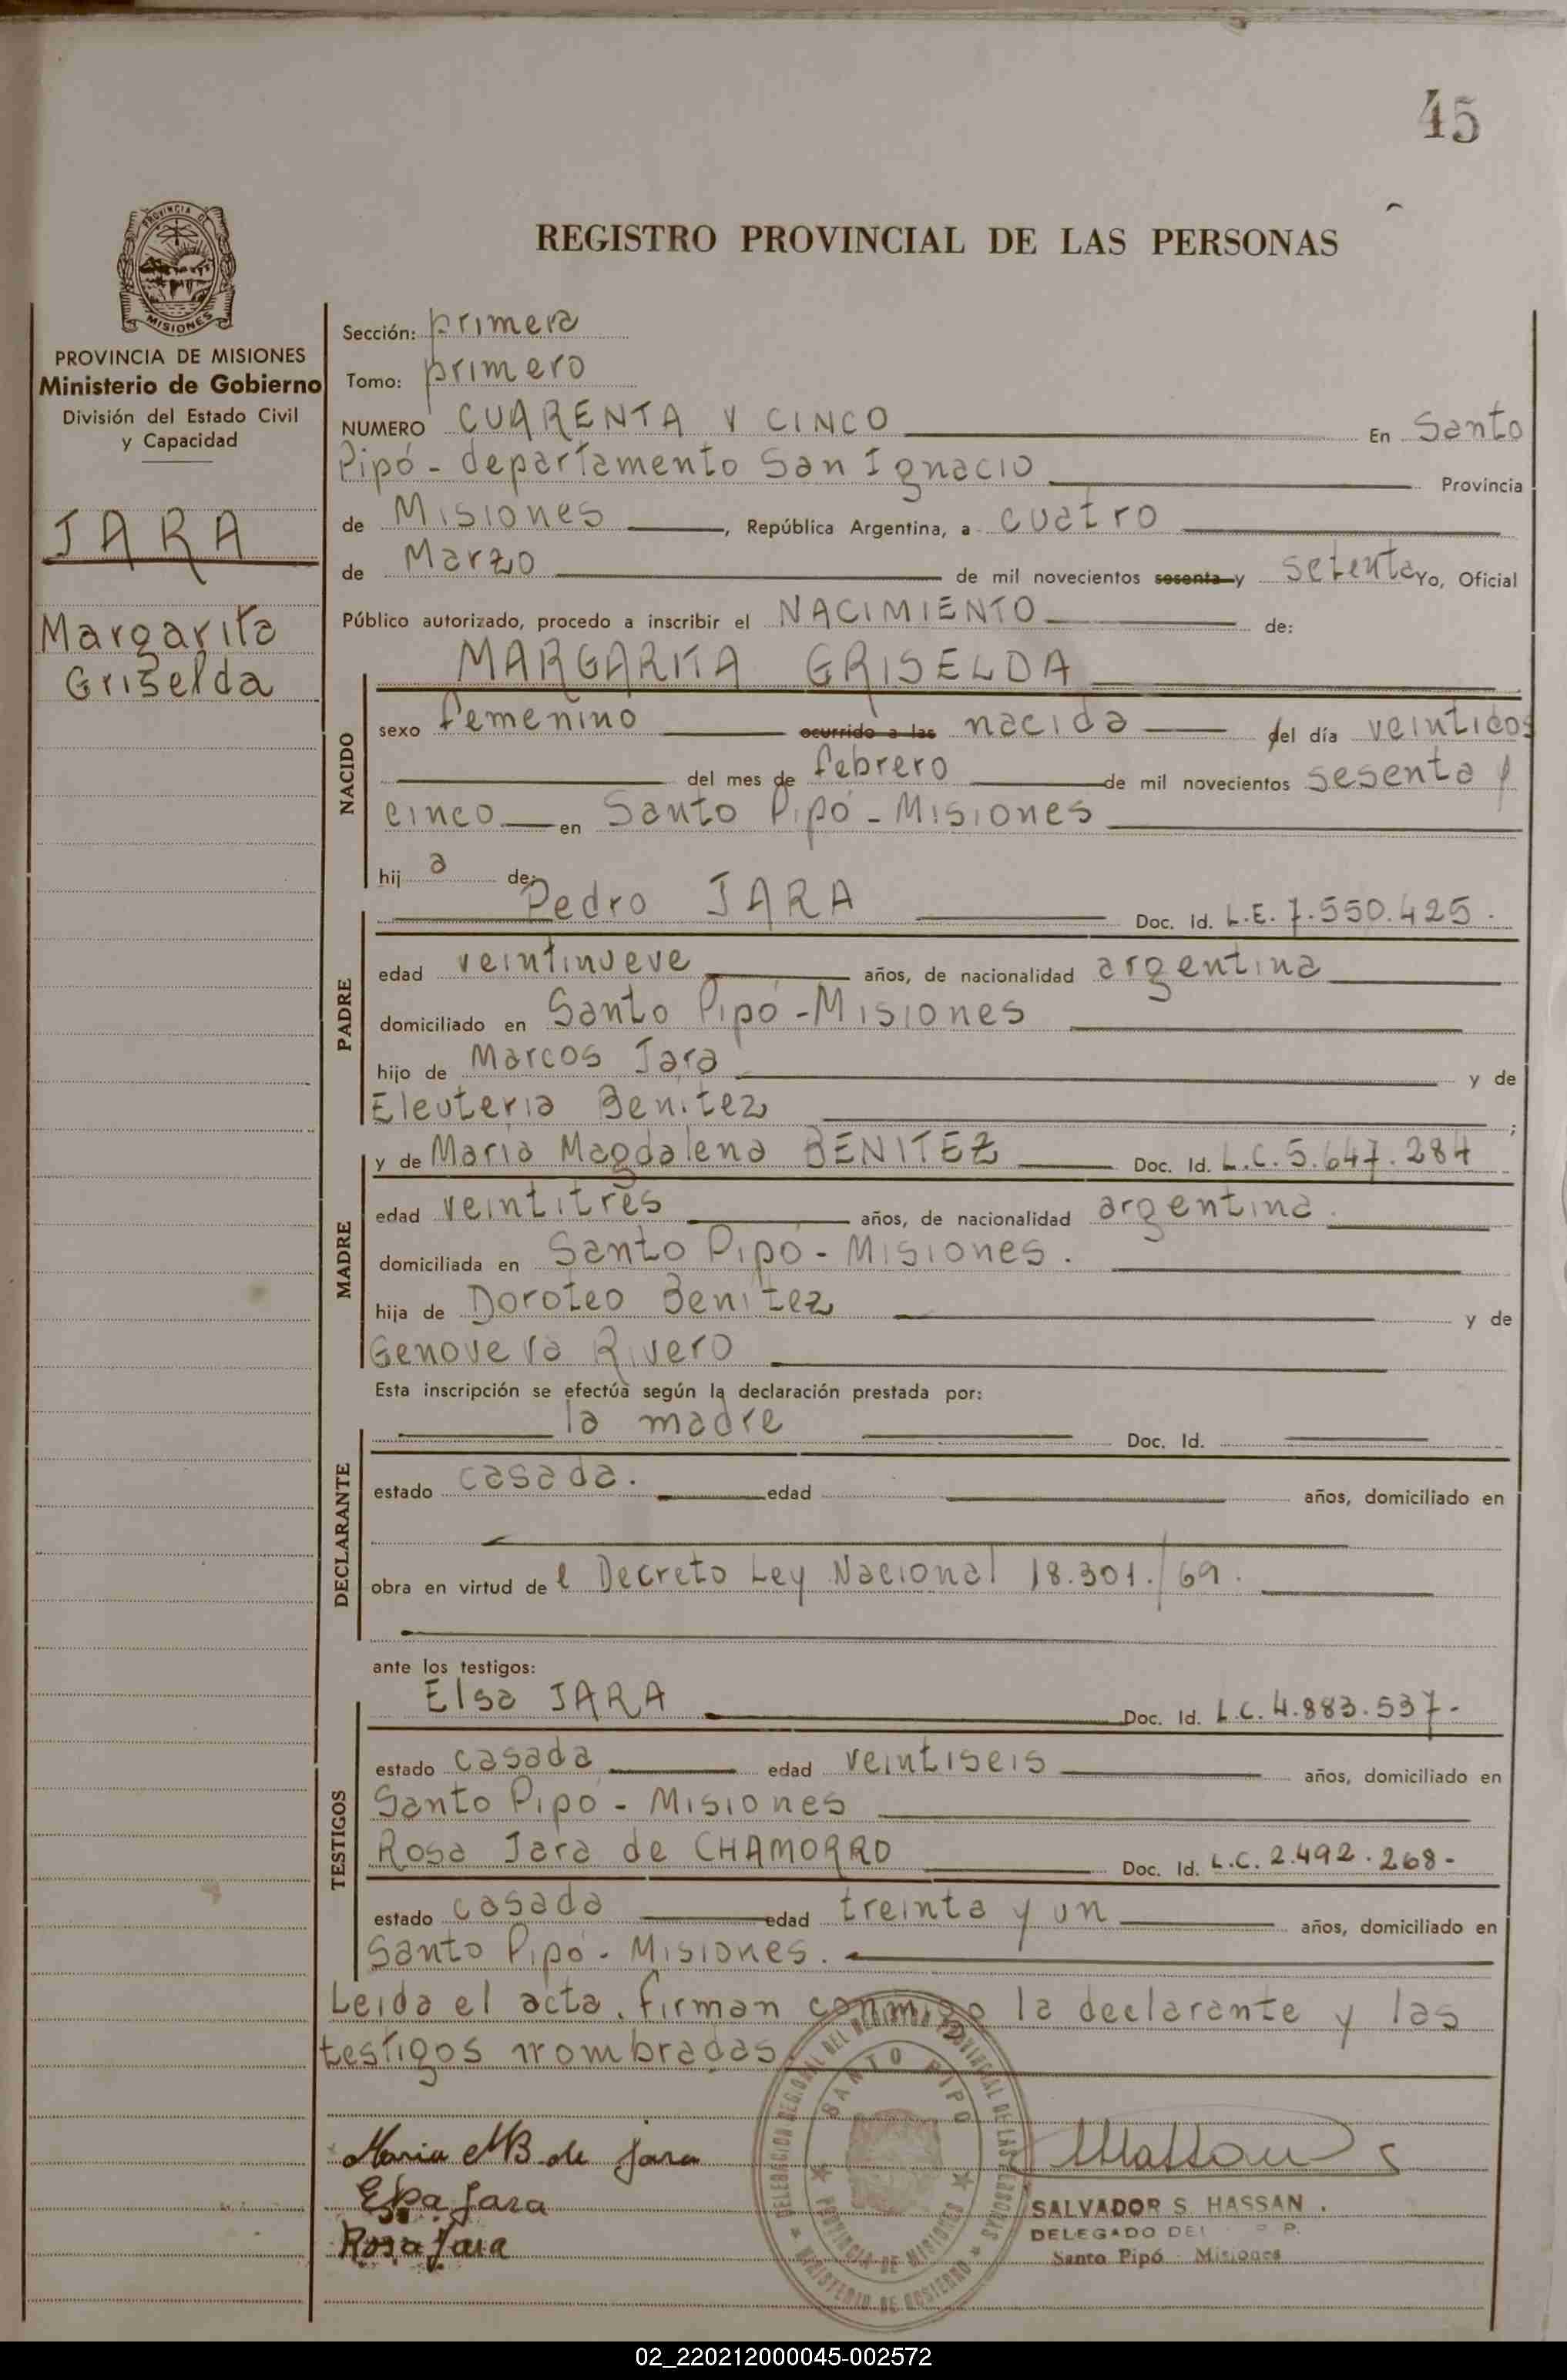 45
PROVINCIA DE
MISIONES
REGISTRO PROVINCIAL DE LAS PERSONAS
PROVINCIA DE MISIONES
Ministerio de Gobierno
División del Estado Civil
y Capacidad
JARA
Margarita
Griselda
Sección: primera
Tomo: primero
NUMERO CUARENTA Y CINCO En Santo
Pipó - departamento San Ignacio Provincia
de Misiones, República Argentina, a cuatro
de Marzo de mil novecientos sesenta y setenta Yo, Oficial
Público autorizado, procedo a inscribir el NACIMIENTO de:
MARGARITA GRISELDA
NACIDO
sexo femenino ocurrido a las nacida del día veintidos
del mes de febrero de mil novecientos sesenta y
cinco en Santo Pipó - Misiones
hij a de:
PADRE
Pedro JARA Doc. Id. L.E. 7.550.425.
edad veintinueve años, de nacionalidad argentina
domiciliado en Santo Pipó - Misiones
hijo de Marcos Jara y de
Eleuteria Benitez ;
MADRE
y de Maria Magdalena BENITEZ Doc. Id. L.C. 5.647.284
edad veintitrés años, de nacionalidad argentina.
domiciliada en Santo Pipó - Misiones.
hija de Doroteo Benitez y de
Genoveva Rivero
Esta inscripción se efectúa según la declaración prestada por:
DECLARANTE
la madre Doc. Id.
estado casada. edad años, domiciliado en
obra en virtud de l Decreto Ley Nacional 18.301./69.
ante los testigos:
TESTIGOS
Elsa JARA Doc. Id. L.C. 4.883.537-
estado casada edad veintiseis años, domiciliado en
Santo Pipó - Misiones
Rosa Jara de CHAMORRO Doc. Id. L.C. 2.492.268-
estado casada edad treinta y un años, domiciliado en
Santo Pipó - Misiones.
Leida el acta, firman conmigo la declarante y las
testigos nombradas
DELEGACION REGIONAL DEL REGISTRO PROVINCIAL DE LAS PERSONAS
SANTO PIPO
PROVINCIA DE MISIONES
MINISTERIO DE GOBIERNO
Maria M B de Jara
Elsa Jara
Rosa Jara
SALVADOR S. HASSAN.
DELEGADO DEL P.
Santo Pipó Misiones
02_220212000045-002572